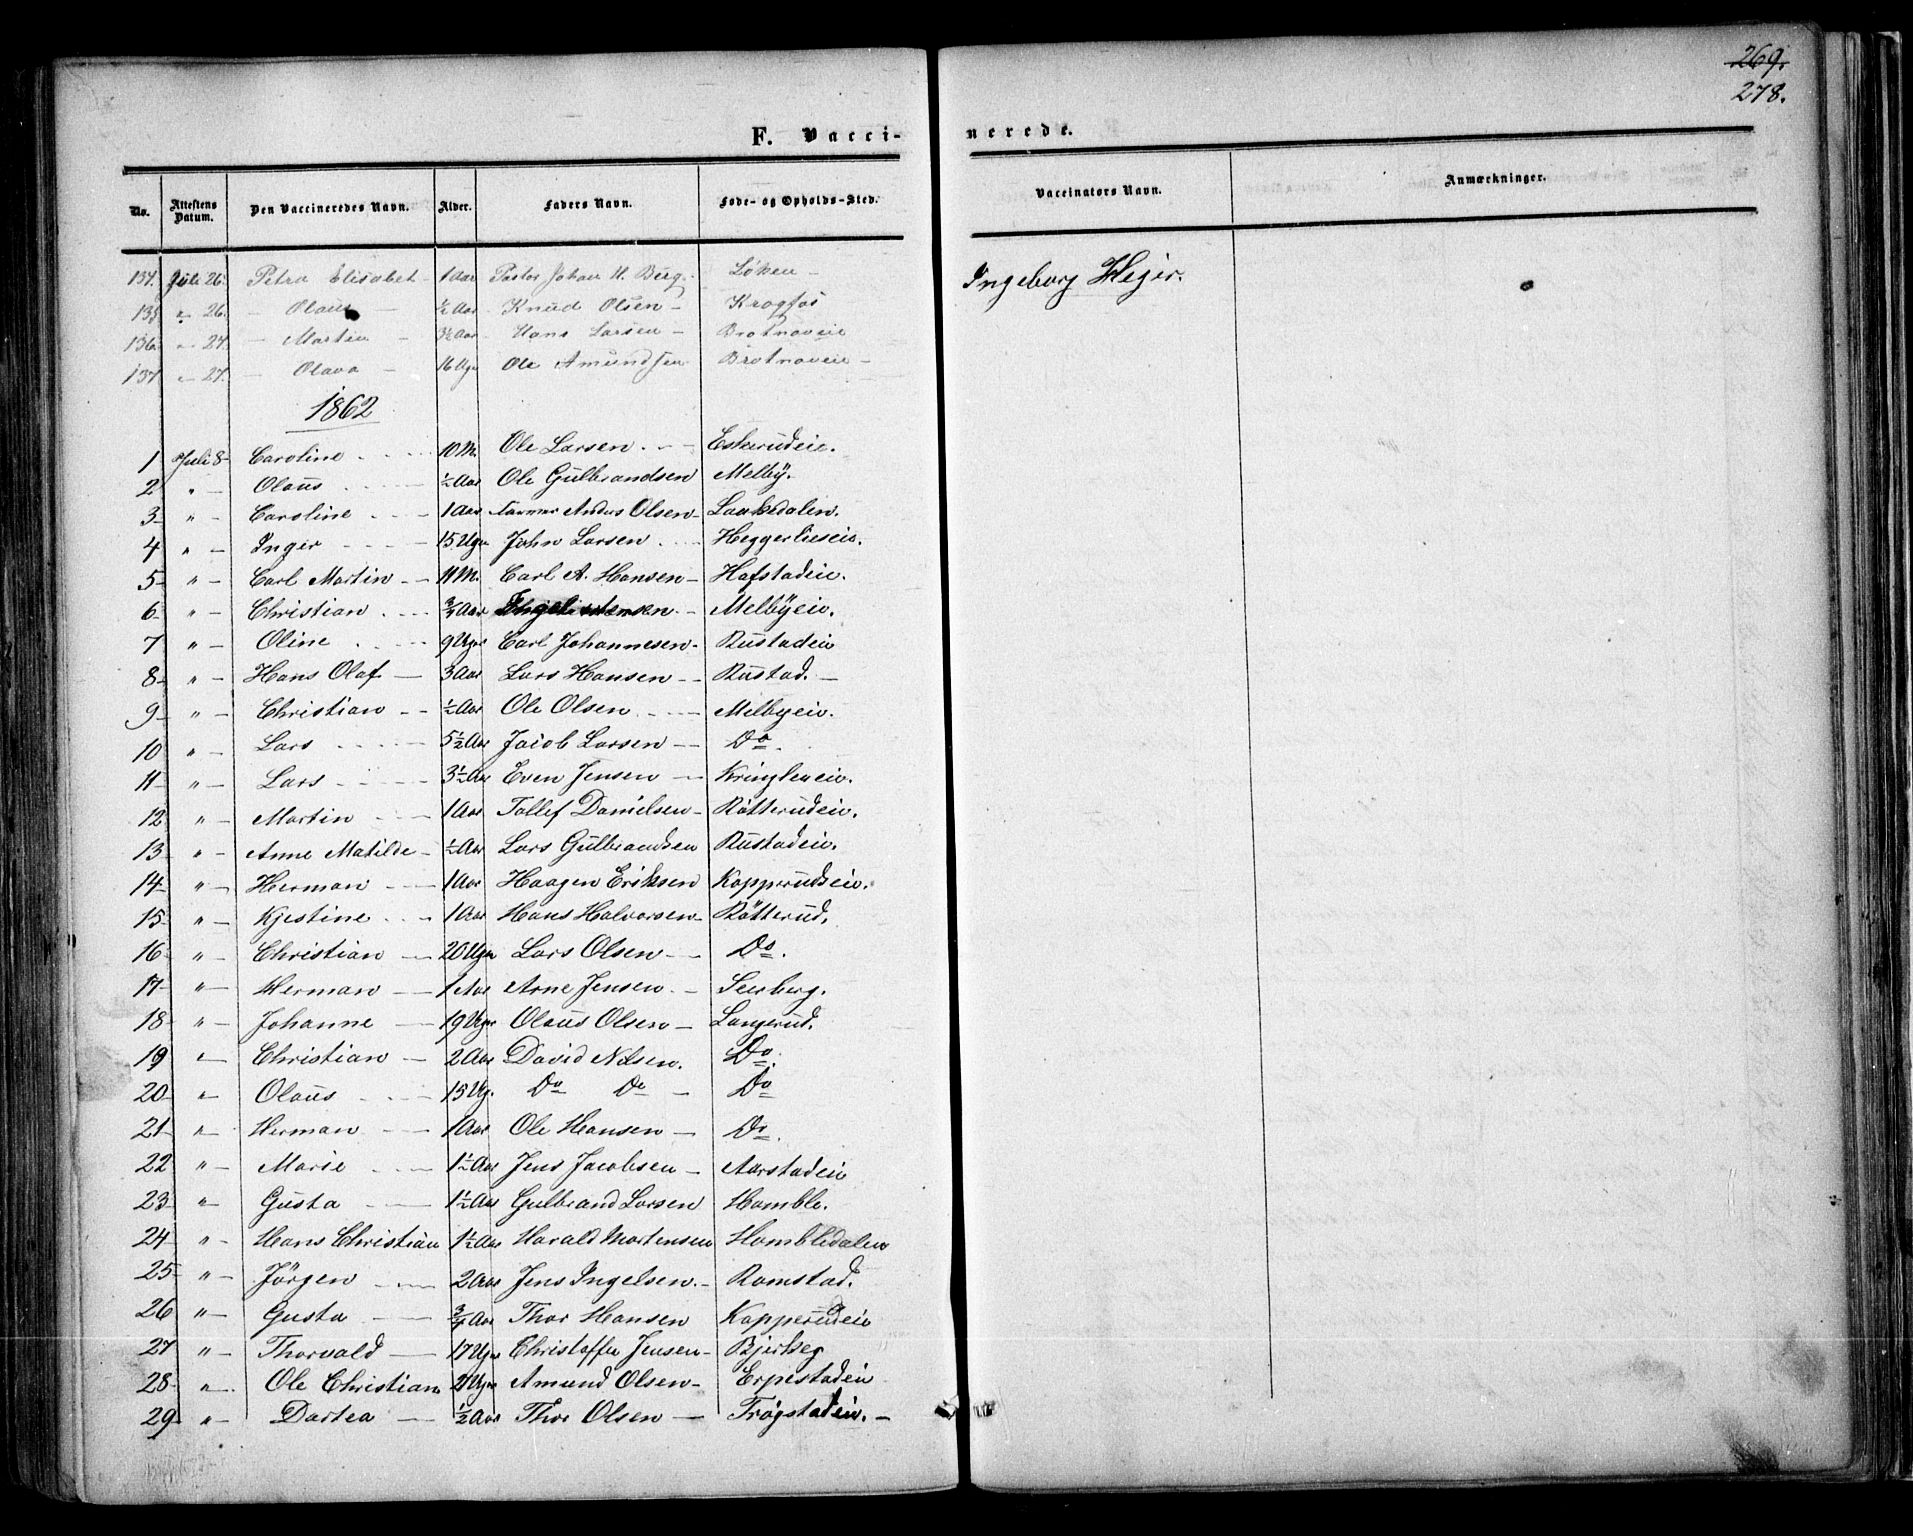 269.
278.
F. Vaccinerede.
No. Attestens Datum. Den Vaccineredes Navn. Alder. Faders Navn. Føde- og Opholds-Sted. Vaccinators Navn. Anmærkninger.
134. Juli 26. Petra Elisabet - 1 Aar Pastor Johan H. Berg. Löken - Ingeborg Hejer.
135 " 26. - Olaus - ½ Aar Knud Olsen - Krogfos
136 " 27. - Martin - 3½ Aar Hans Larsen - Brotnoveie
137 " 27. - Olava - 16 Uger Ole Amundsen Brotnoveie -
1862
1 Juli 8 - Caroline 10 M. Ole Larsen - Eskerudeie.
2 " - Olaus ½ Aar Ole Gulbrandsen Melby.
3 " - Caroline 1 Aar Anders Olsen - Laakedalen.
4 " - Inger 15 Uger John Larsen Heggerlieseie.
5 " - Carl Martin - 11 M. Carl A. Hansen - Hafstadeie.
6 " - Christian ¾ Aar Melbyeie.
7 " - Oline 9 Uger Carl Johannesen - Rustadeie
8 " - Hans Olaf - 3 Aar Lars Hansen - Rustad. -
9 " - Christian - ½ Aar Ole Olsen Melbyeie.
10 " - Lars 5½ Aar Jacob Larsen - Do.
11 " - Lars 3½ Aar Even Jensen - Kringleneie.
12 " - Martin 1 Aar Tollef Danielsen - Rötterudeie.
13 " - Anne Matilde - ½ Aar Lars Gulbrandsen Rustadeie.
14 " - Herman 1 Aar Haagen Eriksen Kopperudseie.
15 " - Kjestine 1 Aar Hans Halvorsen - Rötterud.
16 " - Christian - 20 Uger Lars Olsen - Do.
17 " - Herman - 1 Aar Arne Jensen - Seierberg.
18 " - Johanne - 19 Uger Olaus Olsen - Langerud.
19 " - Christian - 2 Aar David Nilsen. Do.
20 " - Olaus 15 Ug. Do Do - Do
21 " - Herman 1 Aar Ole Hansen - Do.
22 " - Marie 1½ Aar Jens Jacobsen - Aarstadeie
23 " - Gusta 1½ Aar Gulbrand Larsen Homble.
24 " - Hans Christian 1½ Aar Harald Mortensen Hombledalen
25 " - Jörgen 2 Aar Jens Ingelsen. - Romstad.
26 " - Gusta ¾ Aar Thor Hansen Kopperudeie
27 " - Thorvald - 17 Uger Christoffer Jensen - Bjerkeg
28 " - Ole Christian Uger Amund Olsen - Erpestadeie
29 " - Dortea - ½ Aar Thor Olsen - Trögstadeie. -